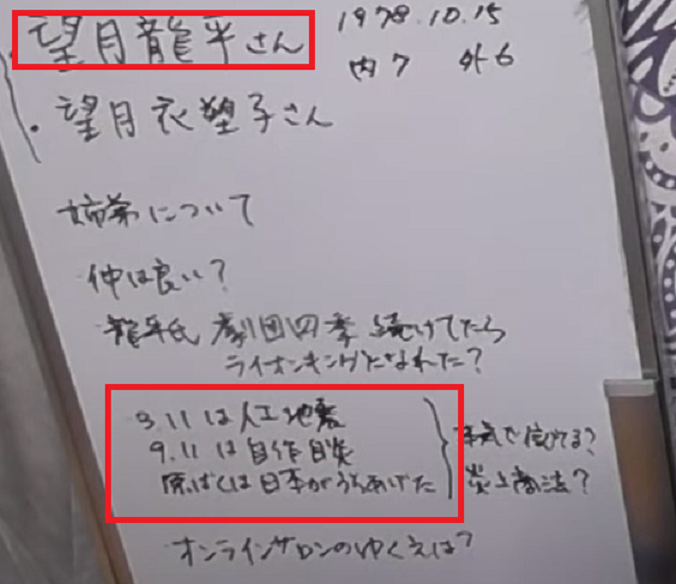 望月龍平さん 1978.10.15
内7 外6
・望月衣塑子さん
姉弟について
仲は良い?
龍平氏 劇団四季 続けてたら
ライオンキングになれた?
3.11は人工地震
9.11は自作自炎
原ばくは日本がうちあげた
本気で信じてる?
炎上商法?
オンラインサロンのゆくえは?